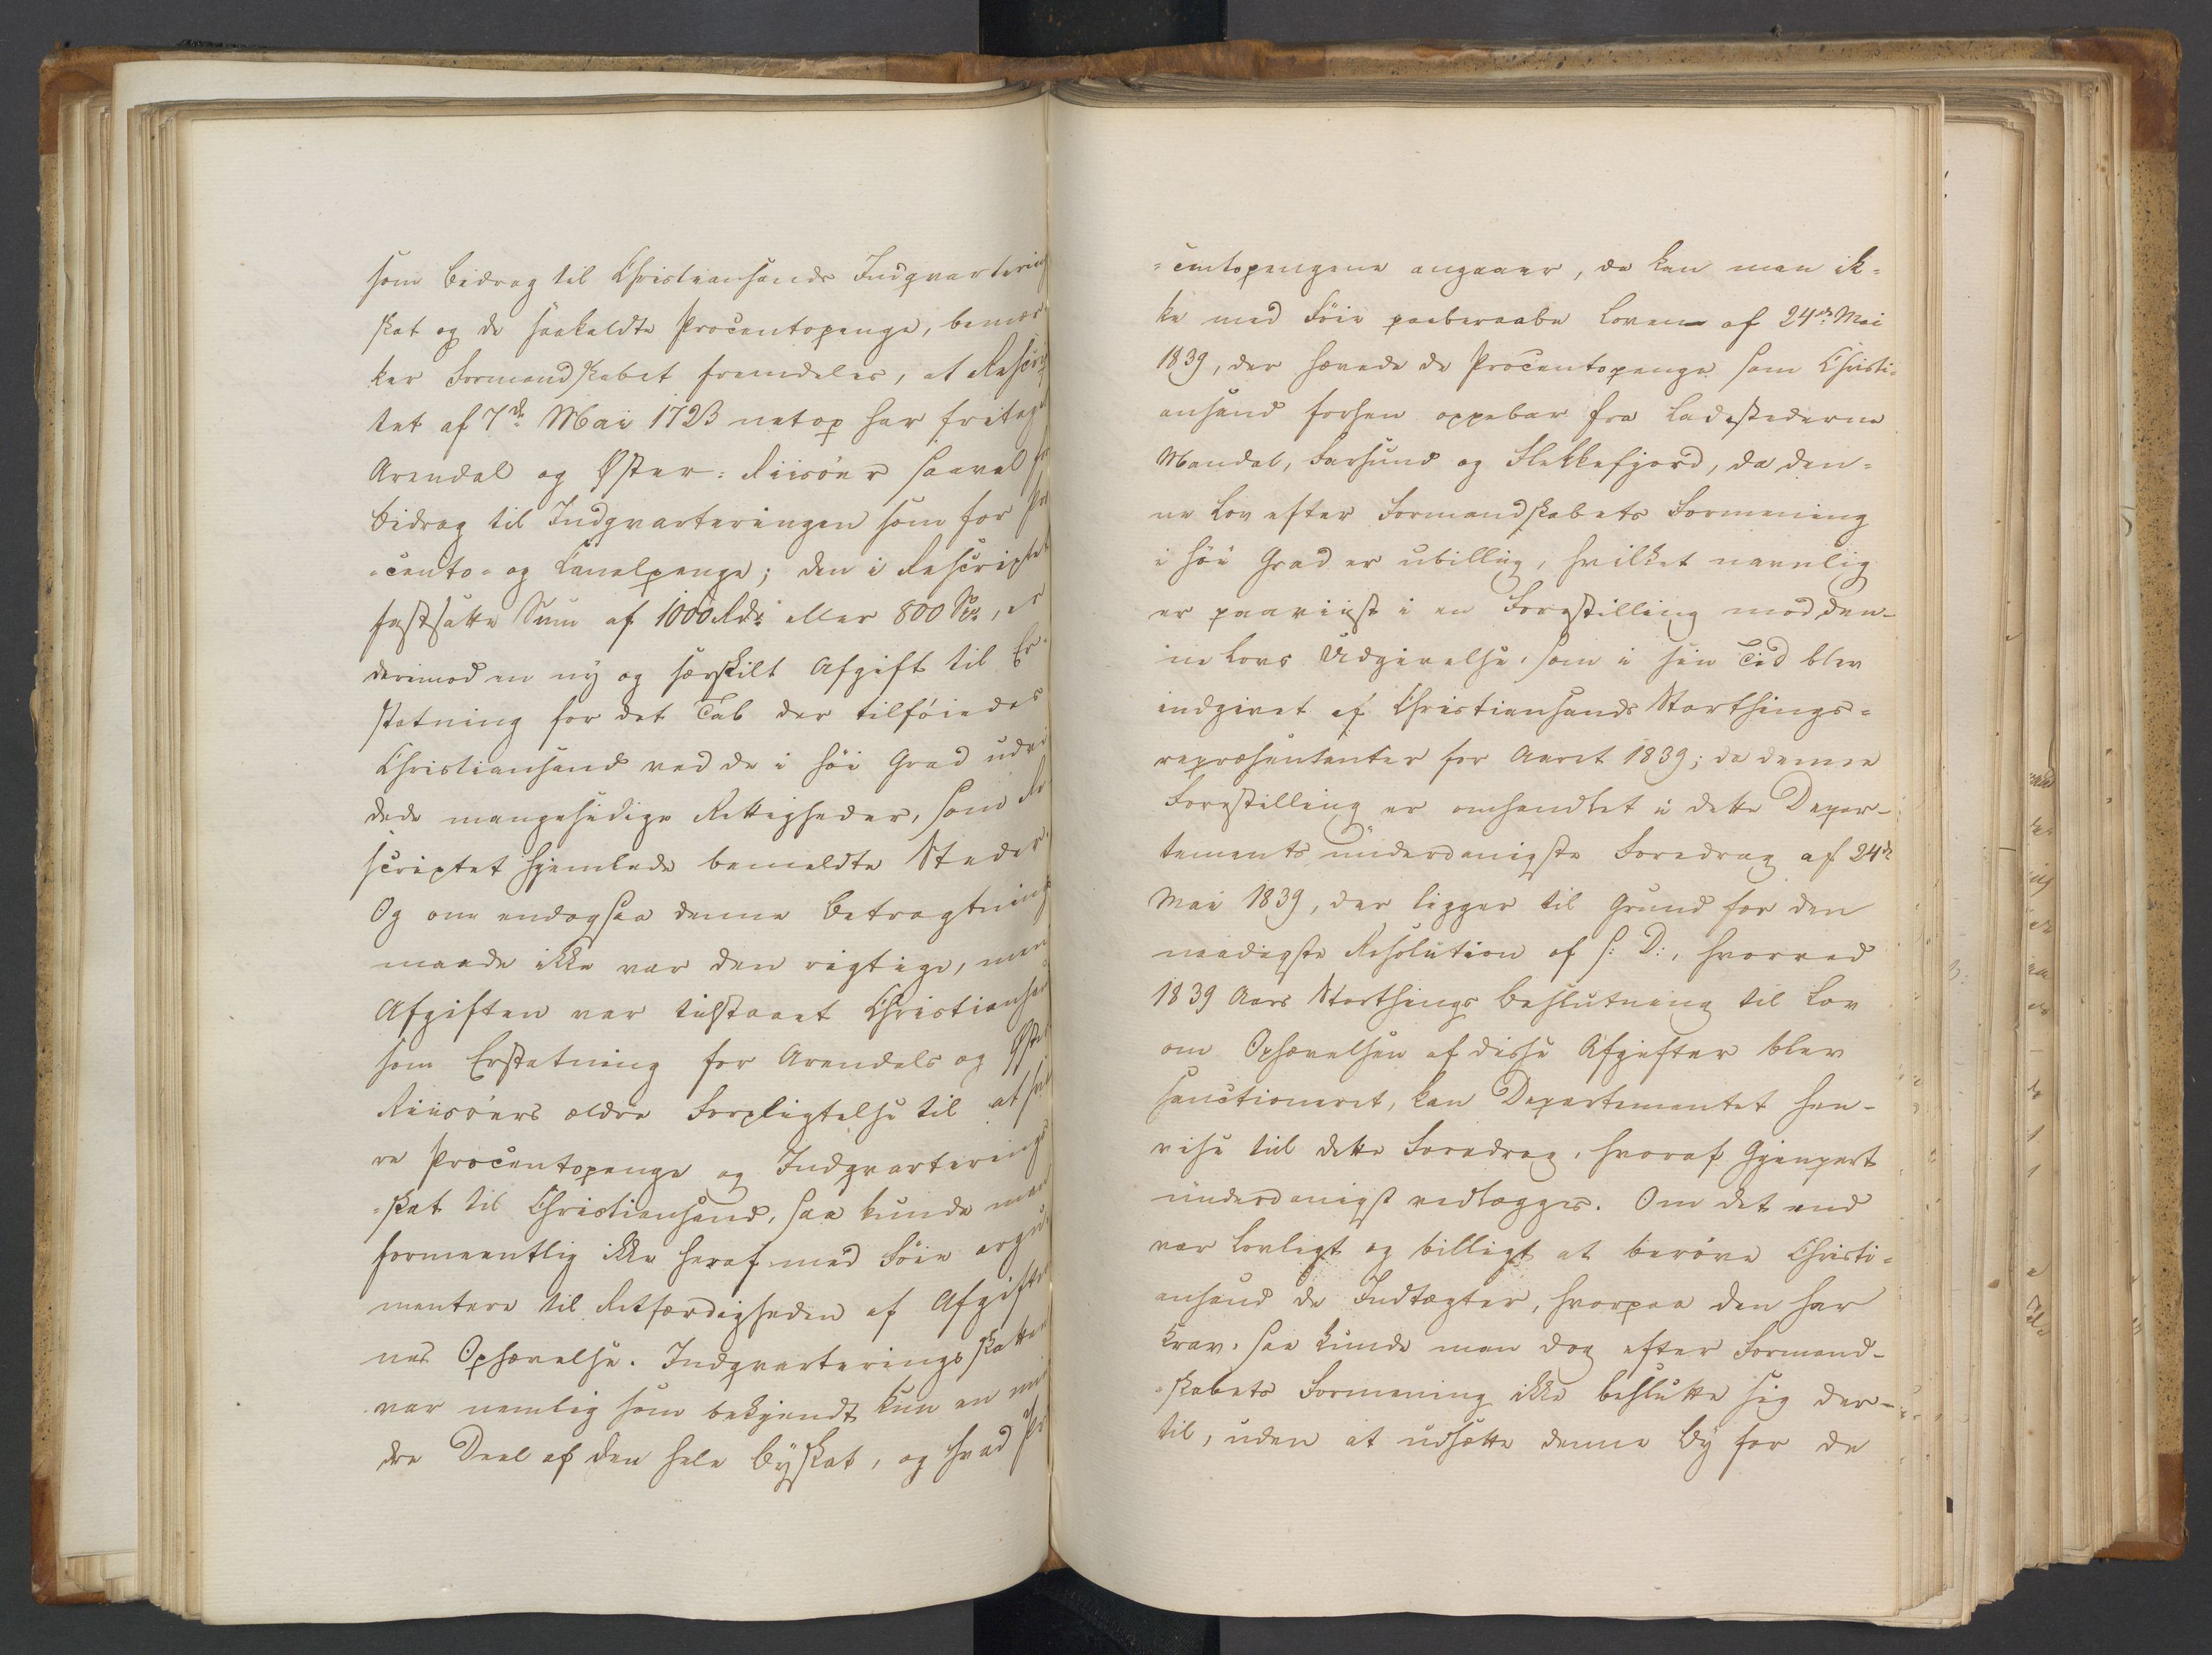 som Bidrag til Christiansands Indqvartering
skat og de saakaldte Procentopenge, bemær
ker Formandskabet fremdeles, at Rescrip
tet af 7de Mai 1723 netop har fritaget
Arendal og Øster-Riisöer saavel
Bidrag til Indqvarteringen som for Pro
-cento- og Canalpenge; den i Rescriptet
fastsatte Sum af 1000 Rdr eller 800 Spd, er
derimod en ny og særskilt Afgift til Er
statning for det Tab der tilföiedes
Christiansand ved de i höi Grad udvi
dede mangesidige Rettigheder, som Re
scriptet hjemlede bemeldte Steder.
Og om endogsaa denne Betragtnings
maade ikke var den rigtige, men
Afgiften var tilstaaet Christiansand
som Erstatning for Arendals og Øster
Riisöers ældre Forpligtelse til at sva
re Procentopenge og Indqvarterings
-skat til Christiansand, saa kunde man
formeentlig ikke heraf med Föie argu
mentere til Retfærdigheden af Afgifter
nes Ophævelse. Indqvarteringsskatten
var nemlig som bekjendt kun en min
dre Deel af den hele Byskat, og hvad Pro
-centopengene angaaer, da kan man ik-
ke med Föie paaberaabe Loven af 24de Mai
1839, der hævede de Procentopenge som Christi-
ansand forhen oppebar fra Ladestederne
Mandal, Farsund og Flekkefjord, da den-
ne Lov efter Formandskabets Formening
i höi Grad er ubillig, hvilket navnlig
er paaviist i en Forestilling mod den-
ne Lovs Udgivelse, som i sin Tid blev
indgivet af Christiansands Storthings-
repræsentanter for Aaret 1839; da denne
Forestilling er omhandlet i dette Depar-
tements underdanigste Foredrag af 24de
Mai 1839, der ligger til Grund for den
naadigste Resolution af s: D:, hvorved
1839 Aars Storthings Beslutning til Lov
om Ophævelsen af disse Afgifter blev
sanctioneret, kan Departementet hen-
vise til dette Foredrag, hvoraf Gjenpart
underdanigst vedlægges. Om det end
var lovligt og billigt at beröve Christi-
ansand de Indtægter, hvorpaa den har
Krav, saa kunde man dog efter Formand-
-skabets Formening ikke beslutte sig der-
til, uden at udsætte denne By for de